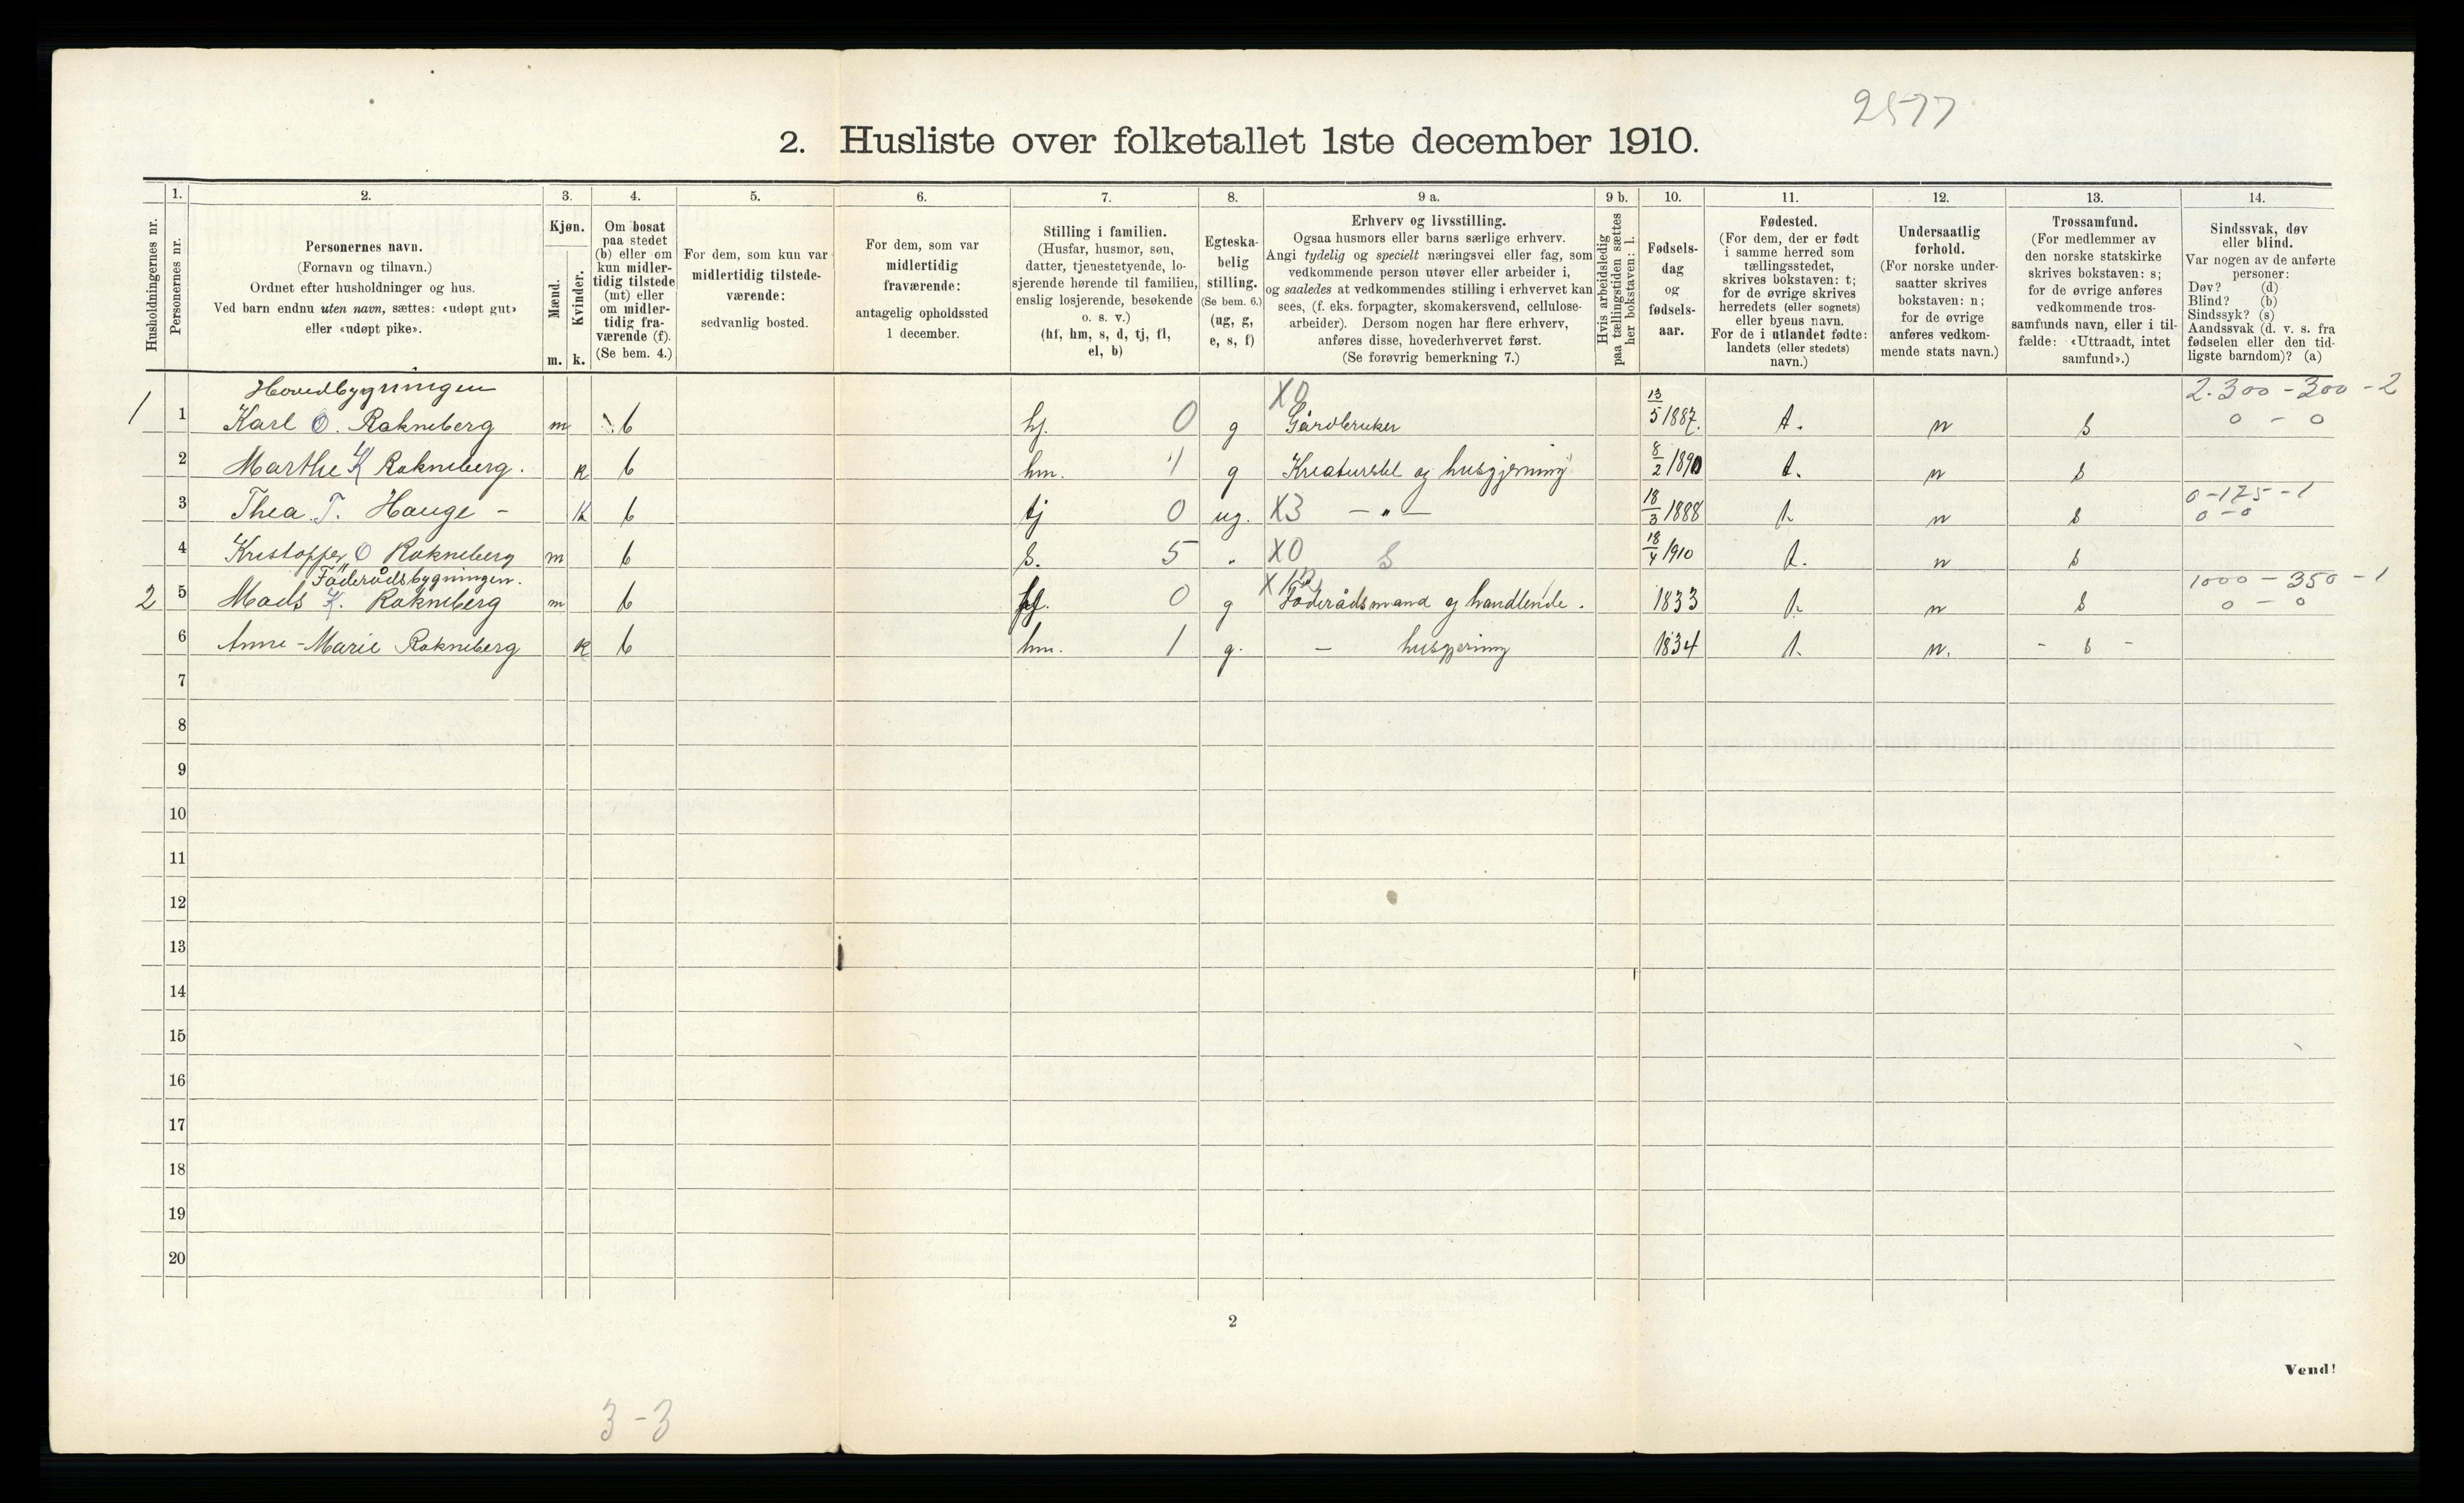 2577
2. Husliste over folketallet 1ste december 1910.
Husholdningernes nr.
1.
Personernes nr.
2.
Personernes navn.
(Fornavn og tilnavn.)
Ordnet efter husholdninger og hus.
Ved barn endnu uten navn, sættes: «udøpt gut»
eller «udøpt pike».
3.
Kjøn.
Mænd.
m.
Kvinder.
k.
4.
Om bosat
paa stedet
(b) eller om
kun midler-
tidig tilstede
(mt) eller
om midler-
tidig fra-
værende (f).
(Se bem. 4.)
5.
For dem, som kun var
midlertidig tilstede-
værende:
sedvanlig bosted.
6.
For dem, som var
midlertidig
fraværende:
antagelig opholdssted
1 december.
7.
Stilling i familien.
(Husfar, husmor, søn,
datter, tjenestetyende, lo-
sjerende hørende til familien,
enslig losjerende, besøkende
o. s. v.)
(hf, hm, s, d, tj, fl,
el, b)
8.
Egteska-
belig
stilling.
(Se bem. 6.)
(ug, g,
e, s, f)
9 a.
Erhverv og livsstilling.
Ogsaa husmors eller barns særlige erhverv.
Angi tydelig og specielt næringsvei eller fag, som
vedkommende person utøver eller arbeider i,
og saaledes at vedkommendes stilling i erhvervet kan
sees, (f. eks. forpagter, skomakersvend, cellulose-
arbeider). Dersom nogen har flere erhverv,
anføres disse, hovederhvervet først.
(Se forøvrig bemerkning 7.)
9 b.
Hvis arbeidsledig
paa tællingstiden sættes
her bokstaven: l.
10.
Fødsels-
dag
og
fødsels-
aar.
11.
Fødested.
(For dem, der er født
i samme herred som
tællingsstedet,
skrives bokstaven: t;
for de øvrige skrives
herredets (eller sognets)
eller byens navn.
For de i utlandet fødte:
landets (eller stedets)
navn.)
12.
Undersaatlig
forhold.
(For norske under-
saatter skrives
bokstaven: n;
for de øvrige
anføres vedkom-
mende stats navn.)
13.
Trossamfund.
(For medlemmer av
den norske statskirke
skrives bokstaven: s;
for de øvrige anføres
vedkommende tros-
samfunds navn, eller i til-
fælde: «Uttraadt, intet
samfund».)
14.
Sindssvak, døv
eller blind.
Var nogen av de anførte
personer:
Døv? (d)
Blind? (b)
Sindssyk? (s)
Aandssvak (d. v. s. fra
fødselen eller den tid-
ligste barndom)? (a)
Hovedbygningen X0 2.300 - 300 - 2
1 1 Karl O. Rakneberg m b hf. 0 g Gårdbruker 13/5 1887. t. n s 0 - 0
2 Marthe K Rakneberg. k b hm. 1 g Kreaturstel og husgjerning 8/2 1890 t. n s
0-175-1
3 Thea T. Hauge - k b tj 0 ug. X3 - " - 18/3 1888 t. n s 0-0
4 Kristoffer O Rakneberg m b s. 5 " X0 S 18/4 1910 t. n s
Föderådsbygningen. 1000 - 350 - 1
2 5 Mads K. Rakneberg m b hf. 0 g Föderådsmand og handlende. 1833 t. n s 0 - 0
6 Anne-Marie Rakneberg k b hm. 1 g. - husgjerning 1834 t. n. - s -
7
8
9
10
11
12
13
14
15
16
17
18
19
20
2
Vend!
3-3